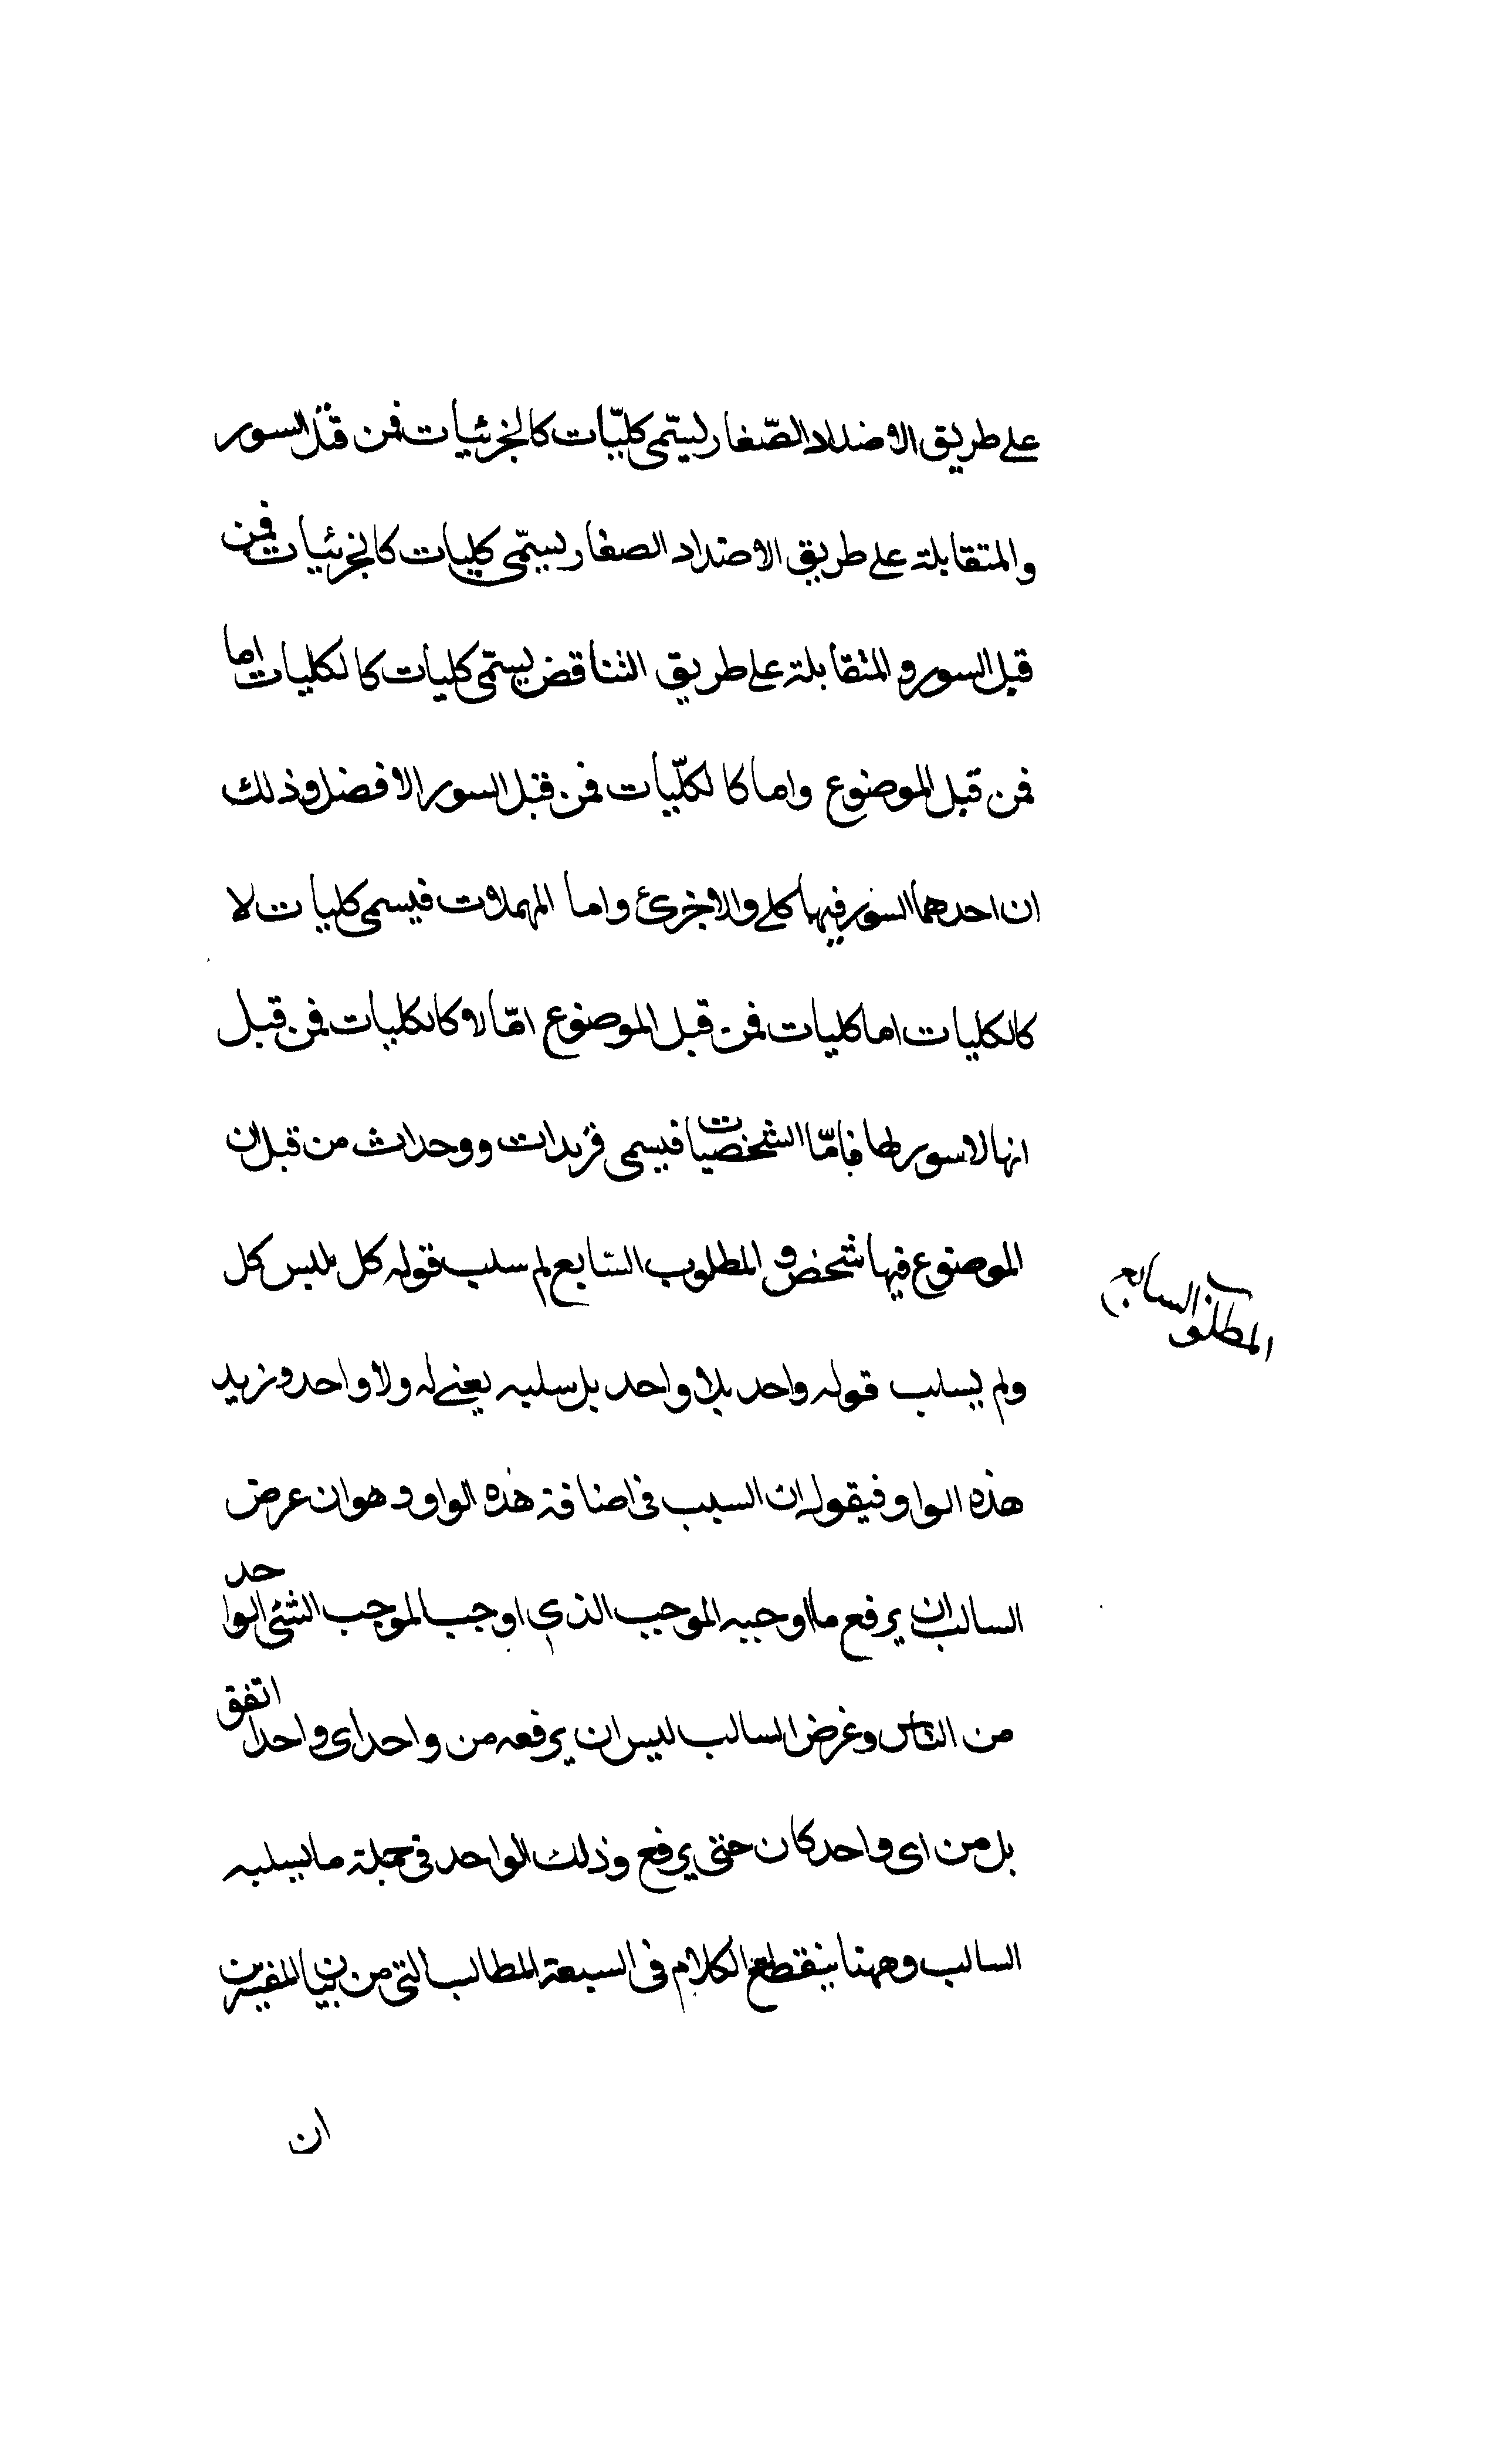 على طريق الاضداد الصّغار ليسّمى كليّات كالجزئيات فمن قبل السور
والمتقابلة على طريق الاضداد الصغار ليسّمى كليات كالجزئيات فمن
قبل السور والمتقابلة على طريق التناقض ليسّمى كليات كالكليات اما
فمن قبل الموضوع واما كالكلّيات فمن قبل السور الافضل وذلك
ان احدهما السور فيها كلى والاخرى واما المهملات فيسمى كليات لا
كالكليات اما كليات فمن قبل الموضوع امّا لا كالكليات فمن قبل
انها لا سور لها فامّا الشخصيات فيسمى فريدات ووحداث من قبل ان
الموضوع فيها شخص و المطلوب السّابع لم سلب قوله كل بليس كل
المطلوب السابع
ولم يسلب قوله واحد بلا واحد بل سلبه يعنى له ولا واحد ونزيد
هذه الواو فيقول ان السبب فى اضافة هذه الواو وهو ان عرض
السالب ان يرفع ما اوجبه الموجب الذى اوجب الموجب الشئ الواحد
من الناس وغرض السالب ليس ان يرفعه من واحد اى واحد اتفق
بل من اى واحد كان حتى يرفع وذلك الواحد فى جملة ما يسلبه
السالب وههنا ينقطع الكلام فى السبعة المطالب التى من بيان المفسرين
ان